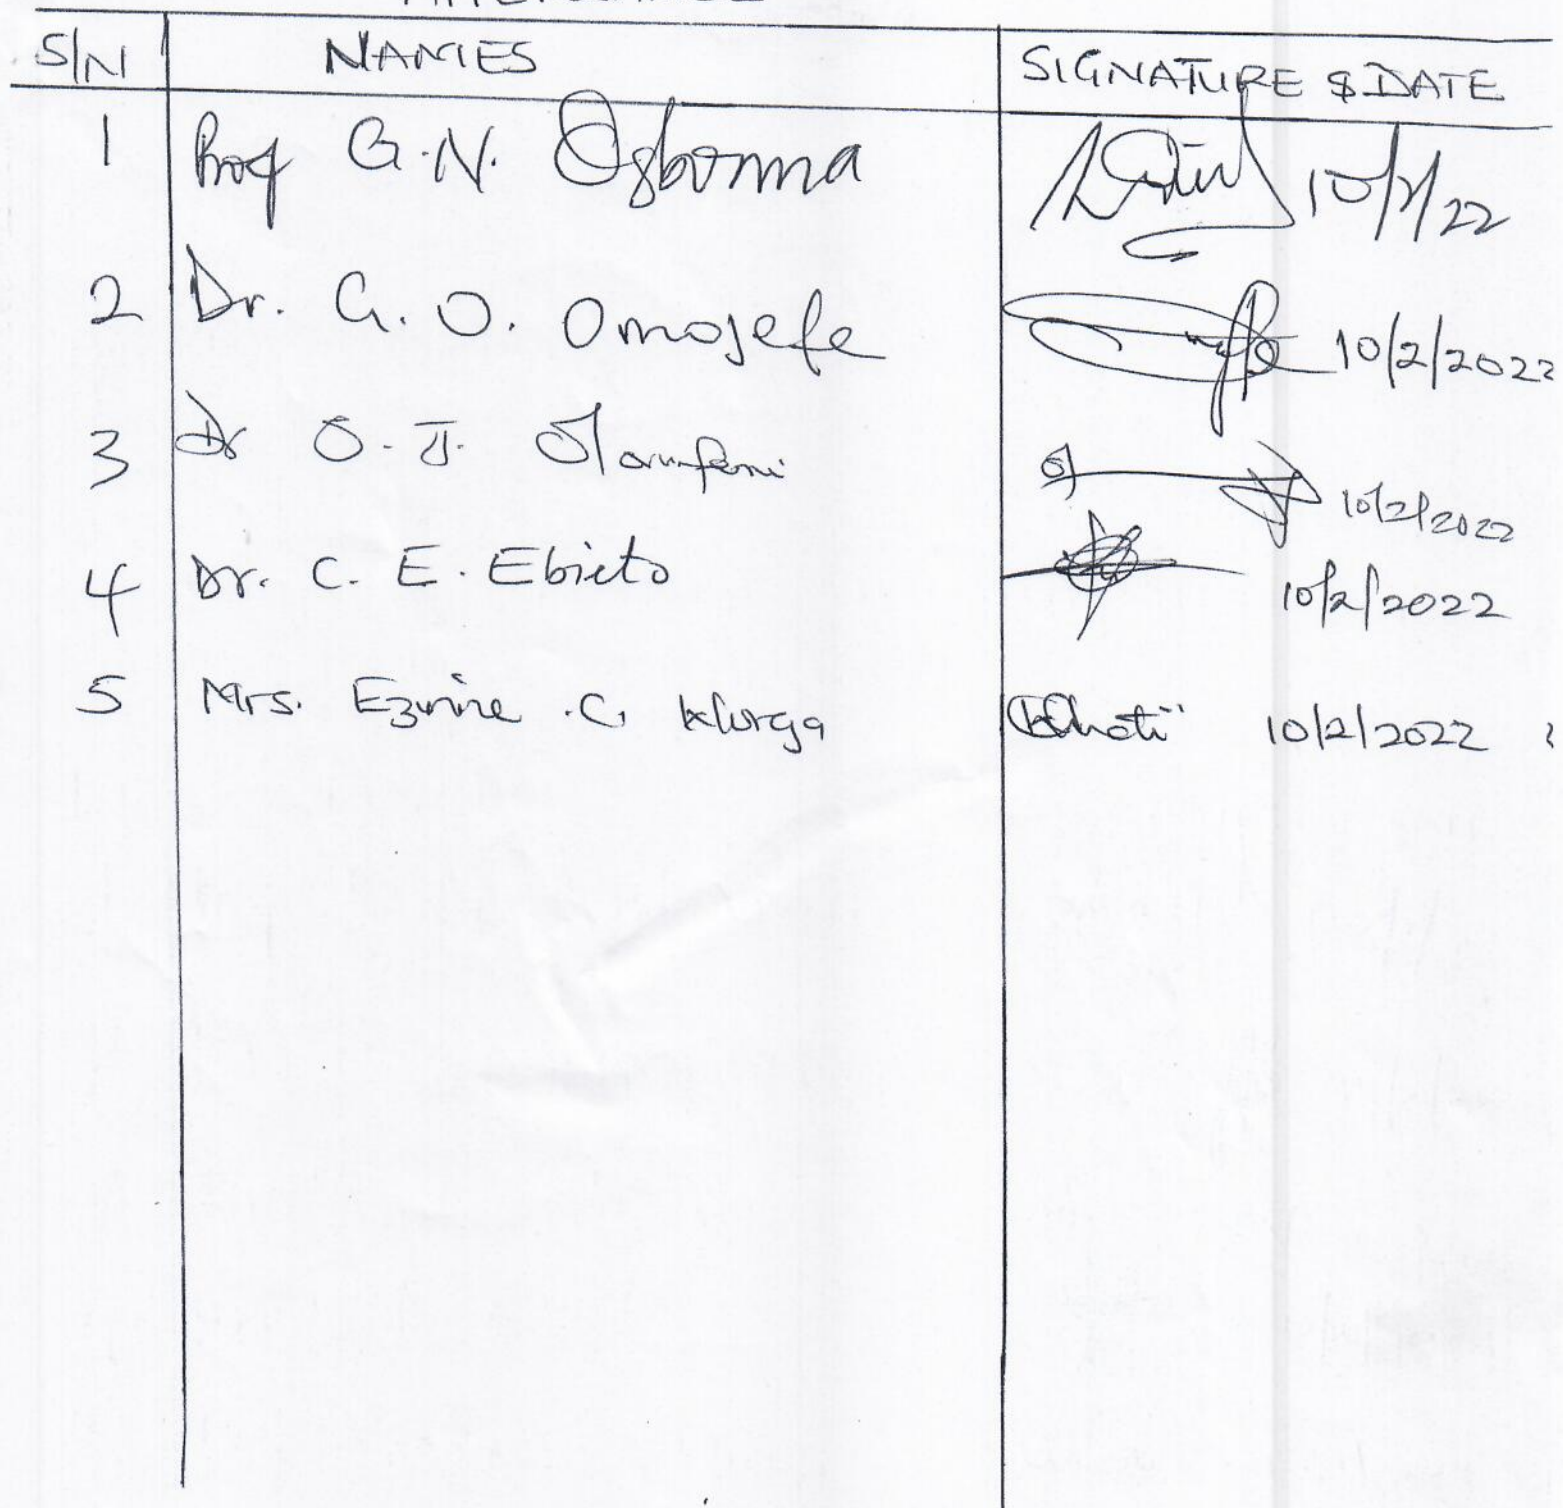 S/N NAMES SIGNATURE & DATE
1 Prof G.N. Ogbonna 10/2/22
2 Dr. G. O. Omojefe 10/2/2022
3 Dr O. J. 10/2/2022
4 Dr. C. E. Ebieto 10/2/2022
5 Mrs. C. 10/2/2022